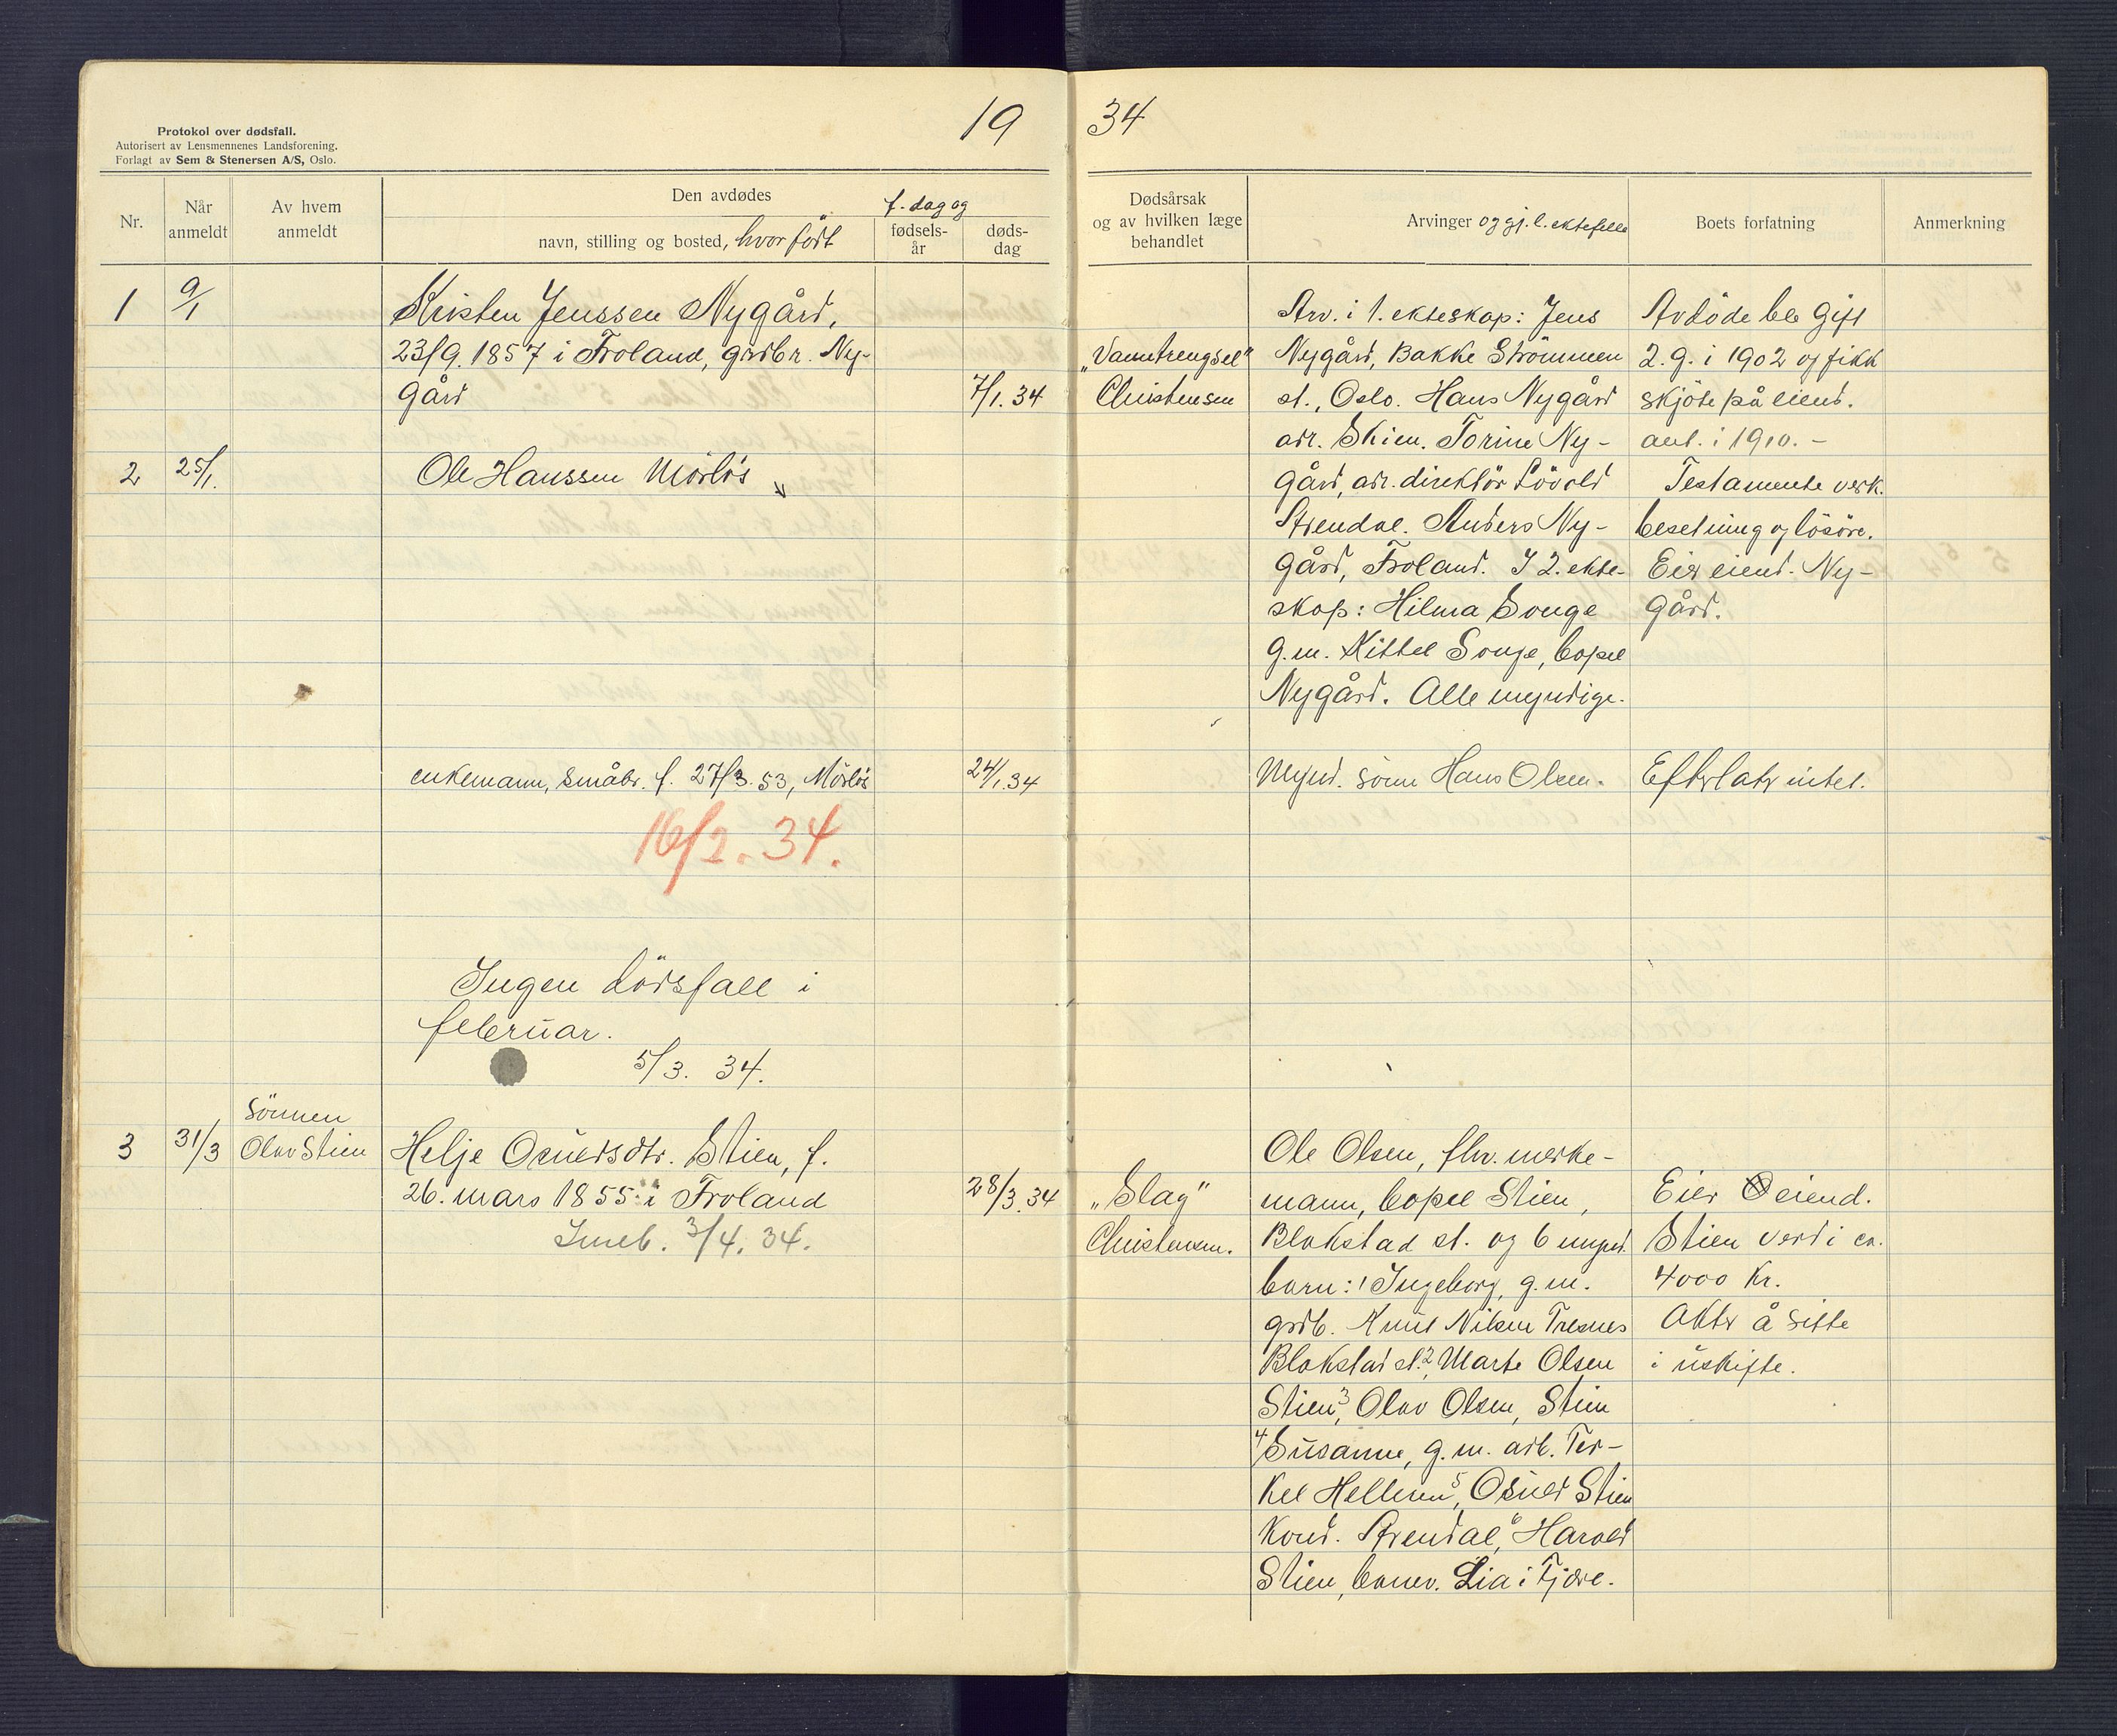 Protokol over dødsfall.
Autorisert av Lensmennenes Landsforening.
Forlagt av Sem & Stenersen A/S, Oslo.
19
34
Nr.
Når
anmeldt
Av hvem
anmeldt
Den avdødes
navn, stilling og bosted, hvor født
f. dag og
fødsels-
år
døds-
dag
Dødsårsak
og av hvilken læge
behandlet
Arvinger og gj. l. ektefelle
Boets forfatning
Anmerkning
1
9/1
Kristen Jenssen Nygård,
23/9. 1857 i Froland, grdbr. Ny-
gård
7/1. 34
„Vanntrengsel"
Christensen
Arv. i 1. ekteskap: Jens
Nygård, Bakke Strömmen
st., Oslo. Hans Nygård
adr. Skien. Torine Ny-
gård, adr. direktör Lövold
Arendal. Anders Ny-
gård, Froland. I 2. ekte-
skap: Hilma Songe
g.m. Kittel Songe, bopel
Nygård. Alle myndige.
Avdöde ble gift
2. g. i 1902 og fikk
skjöte på eiend.
ant. i 1910. -
Testamente verk.
besetning og lösöre.
Eier eiend. Ny-
gård.
2
25/1.
Ole Hanssen Mörlös
enkemann, småbr. f. 27/3. 53, Mörlös
24/1.34
Mynd. sönn Hans Olsen.
Efterlater intet.
16/2. 34.
Ingen dödsfall i
februar.
5/3. 34.
3
31/3
Sönnen
Olav Stien
Helje Osuldsdtr. Stien, f.
26. mars 1855 i Froland
Innb. 3/4. 34.
28/3. 34
„Slag"
Christensen.
Ole Olsen, fhv. merke-
mann, bopel Stien,
Blakstad st. og 6 mynd.
barn: 1 Ingeborg, g.m.
grdb. Knut Nilsen Tresnes
Blakstad st. 2, Marte Olsen
Stien 3, Olav Olsen, Stien
4 Susanne, g. m. arb. Ter-
kel Hellesen 5, Osuld Stien
Kond. Arendal, 6 Harald
Stien, banev. Lia i Fjære.
Eier eiend.
Stien verdi ca.
4000 kr.
Akter å sitte
i uskifte.